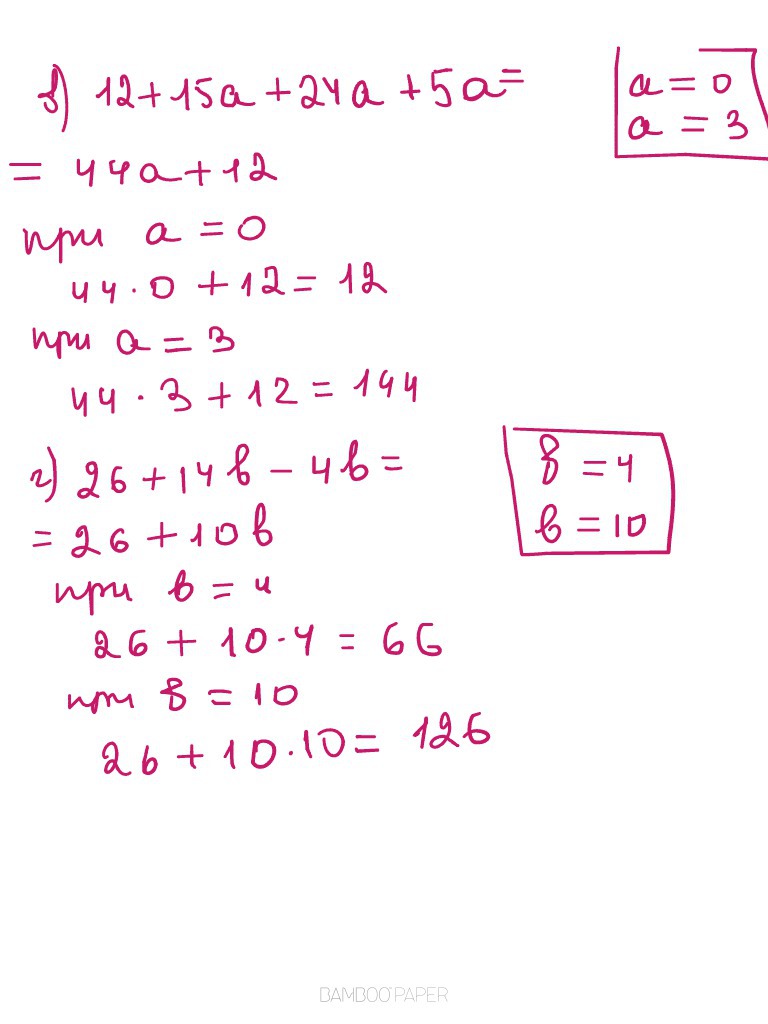 в) 12+15a+24a+5a=
a=0
a=3
= 44a+12
при a=0
44·0+12=12
при a=3
44·3+12=144
г) 26+14в-4в=
в=4
в=10
= 26+10в
при в=4
26+10·4=66
при в=10
26+10·10=126
BAMBOO PAPER